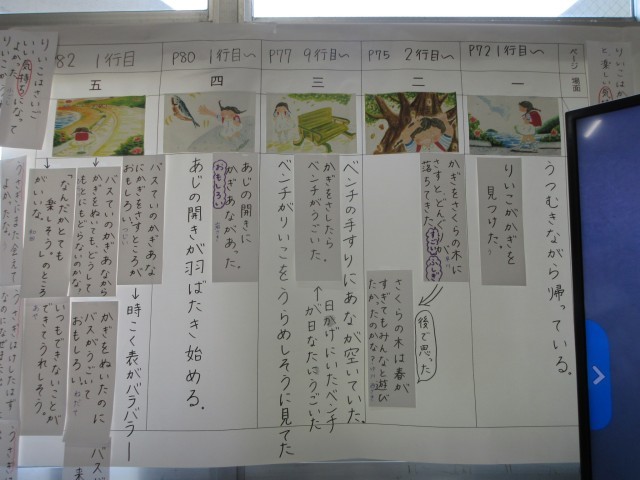 ページ
場面
P72 1行目〜
一
P75 2行目〜
二
P77 9行目〜
三
P80 1行目〜
四
82 1行目
五
うつむきながら帰っている。
りいこがかぎを
見つけた。
かぎをさくらの木に
さすと、どんぐりが
落ちてきた。
すごい
ふしぎ
後で思った
さくらの木は春が
すぎてもみんなと遊び
たかったのかな?
ベンチの手すりにあなが空いていた。
かぎをさしたら
ベンチがうごいた。
日かげにいたベンチ
が日なたにうごいた
ベンチがりいこをうらめしそうに見てた
あじの開きに
かぎあながあった。
おもしろい
あじの開きが羽ばたき始める。
バスていのかぎあな
にかぎをさすところが
おもしろい。
時こく表がバラバラー
バスていのかぎあなから
かぎをぬいても、どうして
もとにもどらないのかな。
かぎをぬいたのに
バスがうごいて
おもしろい。
「なんだかとても
楽しそう」のところ
がいいな。
いつもできないことが
できてうれしそう。
りいこはさいご
いい気持ちになって
よかった